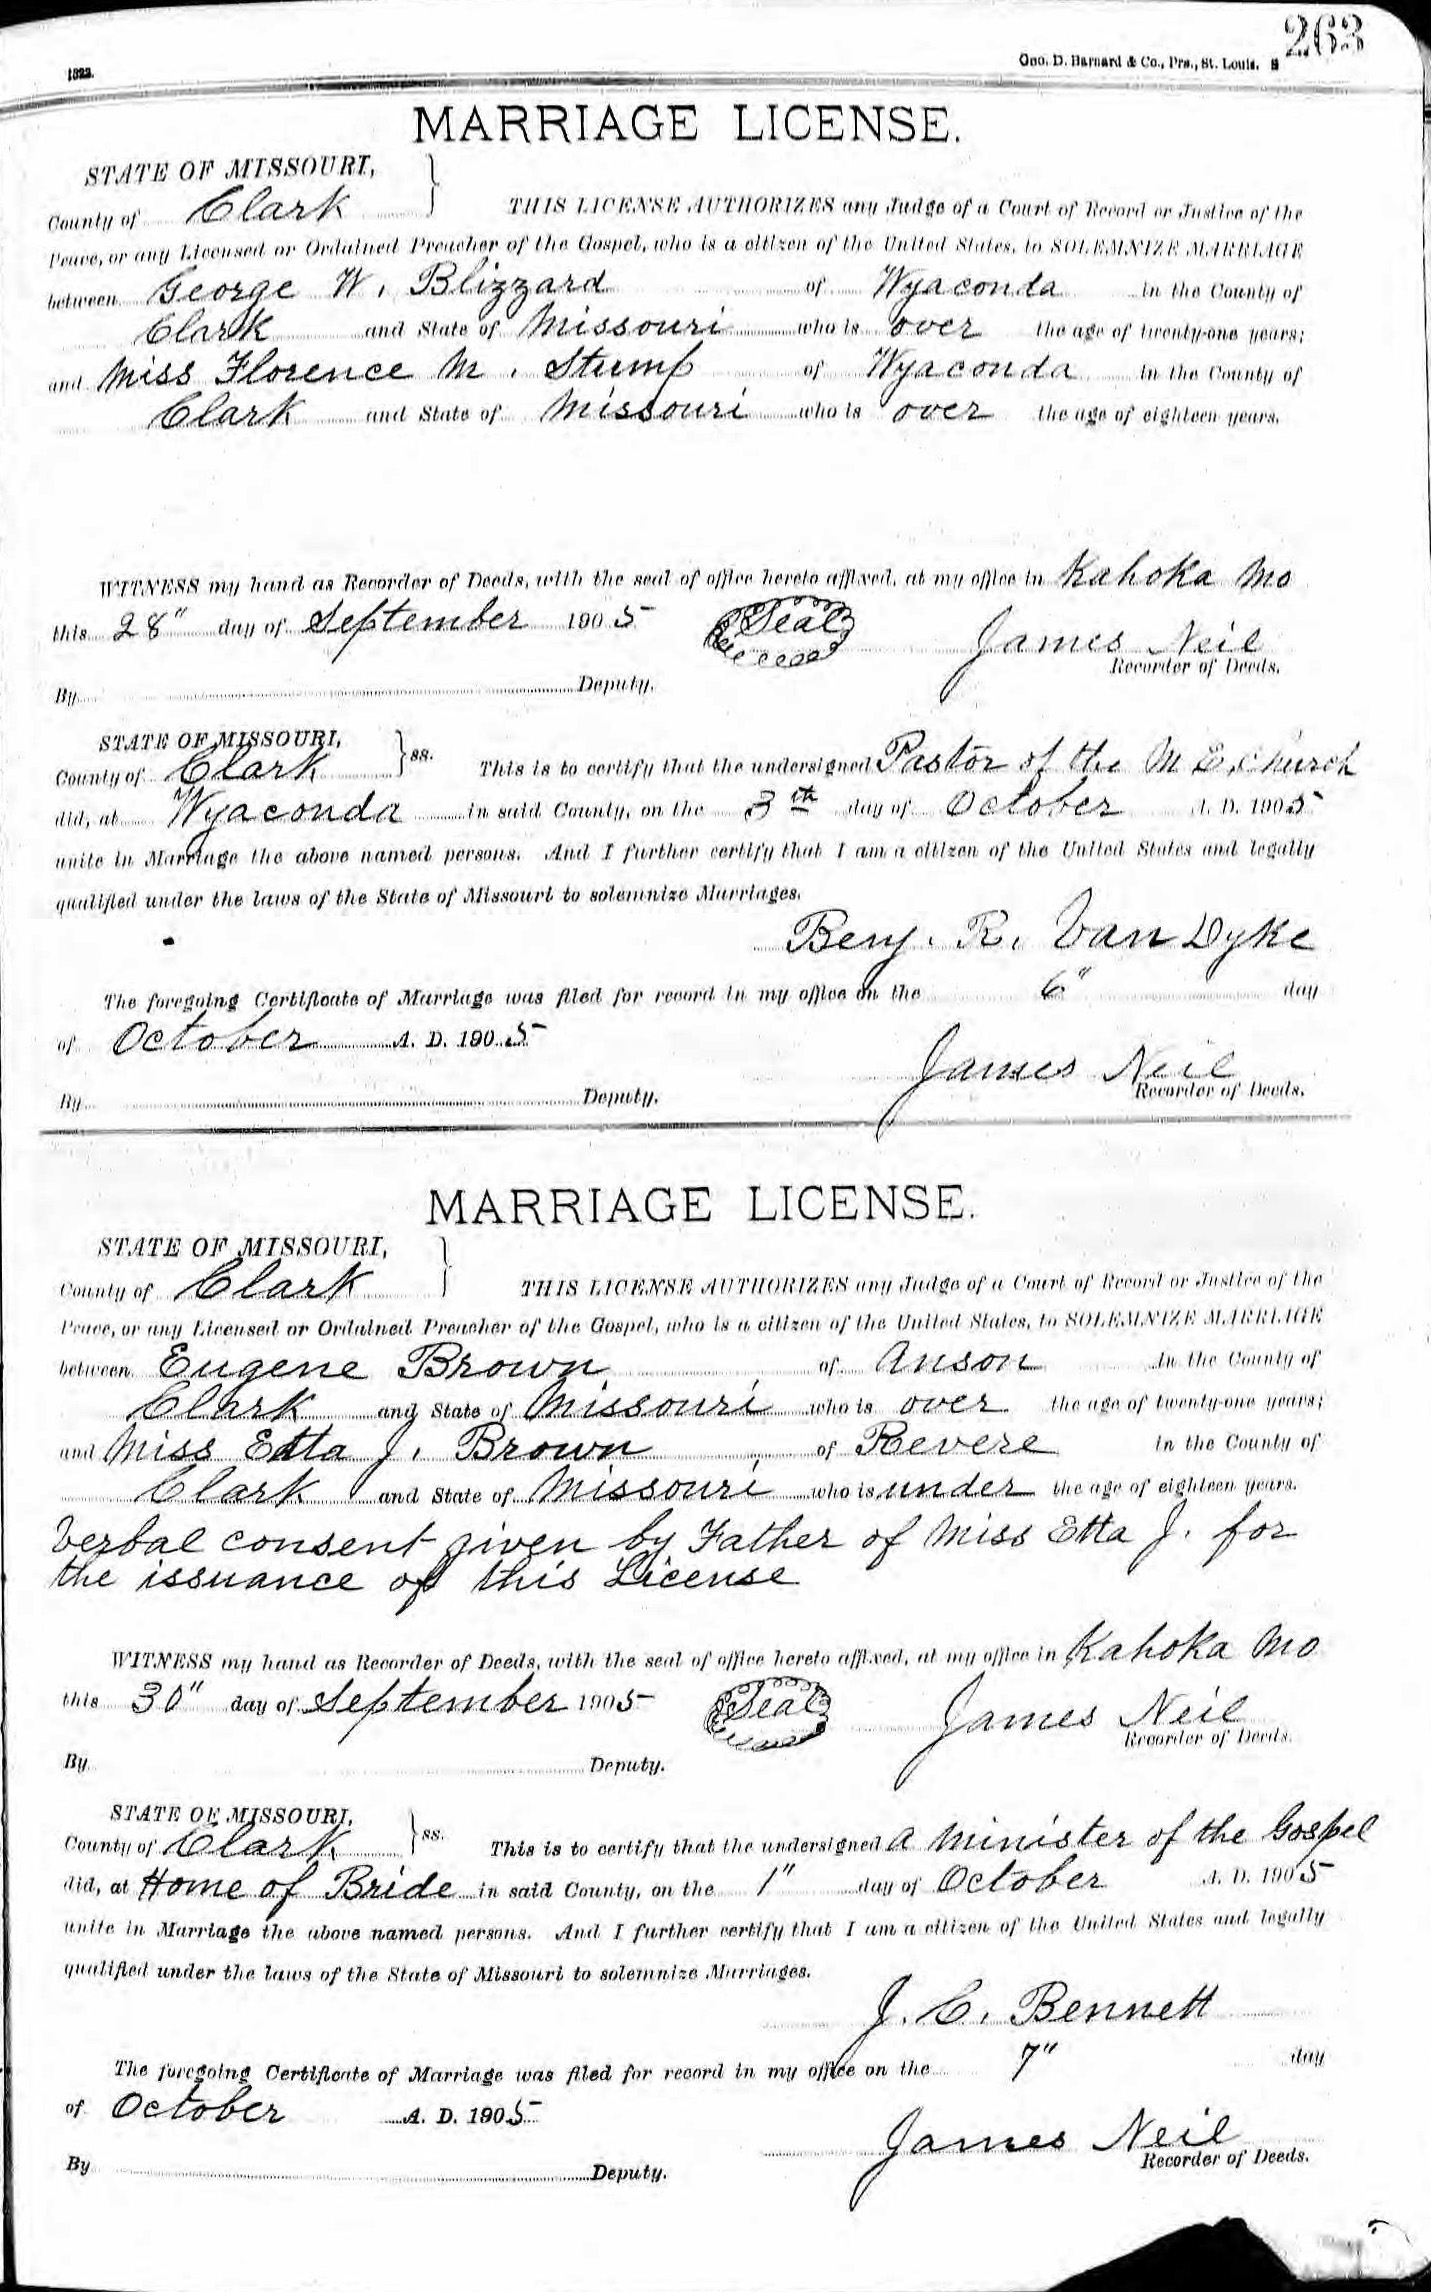 263
1323.
Geo. D. Barnard & Co., Prs., St. Louis.
MARRIAGE LICENSE.
STATE OF MISSOURI,
County of Clark THIS LICENSE AUTHORIZES any Judge of a Court of Record or Justice of the
Peace, or any Licensed or Ordained Preacher of the Gospel, who is a citizen of the United States, to SOLEMNIZE MARRIAGE
between George W. Blizzard of Wyaconda in the County of
Clark and State of Missouri who is over the age of twenty-one years;
and Miss Florence M. Stump of Wyaconda in the County of
Clark and State of Missouri who is over the age of eighteen years.
WITNESS my hand as Recorder of Deeds, with the seal of office hereto affixed, at my office in Kahoka Mo
this 28" day of September 1905 Seal James Neil
Recorder of Deeds.
By Deputy.
STATE OF MISSOURI,
County of Clark ss. This is to certify that the undersigned Pastor of the M. E. Church
did, at Wyaconda in said County, on the 3th day of October A. D. 1905
unite in Marriage the above named persons. And I further certify that I am a citizen of the United States and legally
qualified under the laws of the State of Missouri to solemnize Marriages.
Benj. R. Van Dyke
The foregoing Certificate of Marriage was filed for record in my office on the 6" day
of October A. D. 1905
James Neil
Recorder of Deeds.
By Deputy.
MARRIAGE LICENSE.
STATE OF MISSOURI,
County of Clark THIS LICENSE AUTHORIZES any Judge of a Court of Record or Justice of the
Peace, or any Licensed or Ordained Preacher of the Gospel, who is a citizen of the United States, to SOLEMNIZE MARRIAGE
between Eugene Brown of Anson in the County of
Clark and State of Missouri who is over the age of twenty-one years;
and Miss Etta J. Brown of Revere in the County of
Clark and State of Missouri who is under the age of eighteen years.
Verbal consent given by Father of Miss Etta J. for
the issuance of this License
WITNESS my hand as Recorder of Deeds, with the seal of office hereto affixed, at my office in Kahoka Mo
this 30" day of September 1905 Seal James Neil
Recorder of Deeds.
By Deputy.
STATE OF MISSOURI,
County of Clark ss. This is to certify that the undersigned A Minister of the Gospel
did, at Home of Bride in said County, on the 1" day of October A. D. 1905
unite in Marriage the above named persons. And I further certify that I am a citizen of the United States and legally
qualified under the laws of the State of Missouri to solemnize Marriages.
J. C. Bennett
The foregoing Certificate of Marriage was filed for record in my office on the 7" day
of October A. D. 1905
James Neil
Recorder of Deeds.
By Deputy.